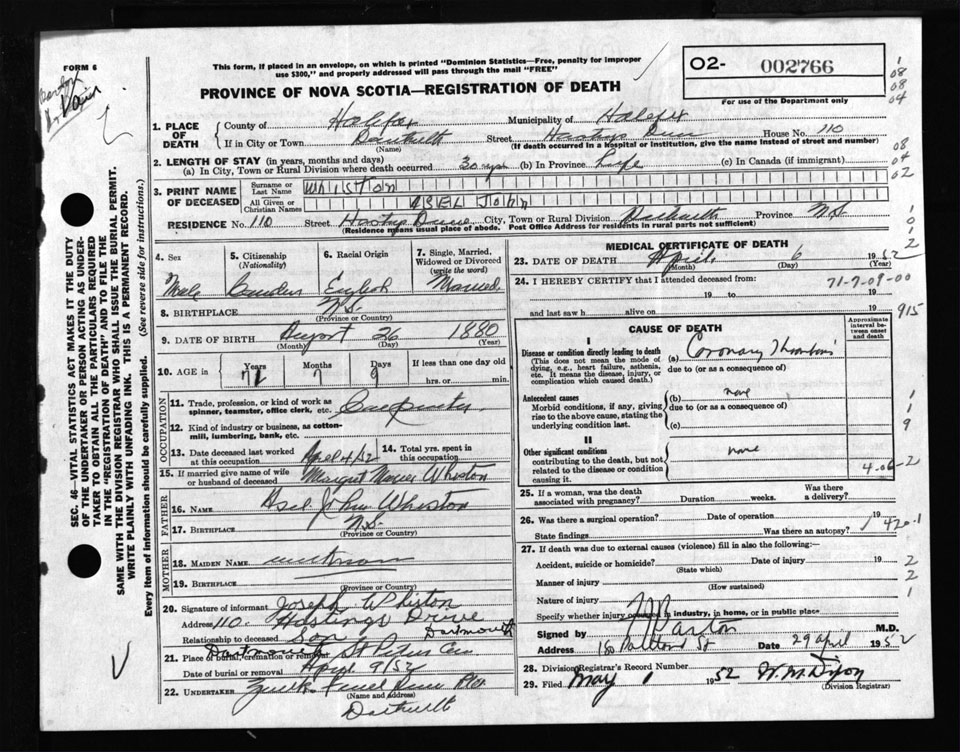 FORM 6
This form, if placed in an envelope, on which is printed "Dominion Statistics—Free, penalty for improper
use $300," and properly addressed will pass through the mail "FREE"
O2- 002766
For use of the Department only
PROVINCE OF NOVA SCOTIA—REGISTRATION OF DEATH
SEC. 46—VITAL STATISTICS ACT MAKES IT THE DUTY
OF THE UNDERTAKER OR PERSON ACTING AS UNDER-
TAKER TO OBTAIN ALL THE PARTICULARS REQUIRED
IN THE "REGISTRATION OF DEATH" AND TO FILE THE
SAME WITH THE DIVISION REGISTRAR WHO SHALL ISSUE THE BURIAL PERMIT.
WRITE PLAINLY WITH UNFADING INK. THIS IS A PERMANENT RECORD.
Every item of information should be carefully supplied. (See reverse side for instructions.)
1. PLACE OF DEATH
County of Halifax Municipality of Halifax
If in City or Town Street Hastings Drive House No. 110
(Name) (If death occurred in a hospital or institution, give the name instead of street and number)
2. LENGTH OF STAY (in years, months and days)
(a) In City, Town or Rural Division where death occurred 30 yrs (b) In Province Life (c) In Canada (if immigrant)
3. PRINT NAME OF DECEASED
Surname or Last Name WHISTON
All Given or Christian Names ASEL JOHN
RESIDENCE No. 110 Street Hastings Drive City, Town or Rural Division Province N.S.
(Residence means usual place of abode. Post Office Address for residents in rural parts not sufficient)
4. Sex
Male
5. Citizenship
(Nationality)
6. Racial Origin
English
7. Single, Married,
Widowed or Divorced
(write the word)
Married
8. BIRTHPLACE N.S.
(Province or Country)
9. DATE OF BIRTH August 26 1880
(Month) (Day) (Year)
10. AGE in Years Months Days If less than one day old
71 7 9 hrs. or min.
OCCUPATION
11. Trade, profession, or kind of work as
spinner, teamster, office clerk, etc. Carpenter
12. Kind of industry or business, as cotton-
mill, lumbering, bank, etc.
13. Date deceased last worked
at this occupation April 4/52
14. Total yrs. spent in
this occupation
15. If married give name of wife
or husband of deceased Whiston
FATHER
16. NAME Asel John Whiston
17. BIRTHPLACE N.S.
(Province or Country)
MOTHER
18. MAIDEN NAME unknown
19. BIRTHPLACE
(Province or Country)
20. Signature of informant Joseph Whiston
Address 110 Hastings Drive Dartmouth
Relationship to deceased Son
21. Place of burial, cremation or removal Dartmouth St Peters Cem
Date of burial or removal April 9/52
22. UNDERTAKER
(Name and Address)
MEDICAL CERTIFICATE OF DEATH
23. DATE OF DEATH April 6 1952
(Month) (Day)
24. I HEREBY CERTIFY that I attended deceased from:
71-7-09-00
19 to 19
and last saw h alive on 19
915
CAUSE OF DEATH
Approximate interval between onset and death
I
Disease or condition directly leading to death (a) Coronary Thrombosis
(This does not mean the mode of
dying, e.g., heart failure, asthenia,
etc. It means the disease, injury, or
complication which caused death.)
due to (or as a consequence of)
Antecedent causes (b) none
Morbid conditions, if any, giving
rise to the above cause, stating the
underlying condition last.
due to (or as a consequence of)
(c)
II
Other significant conditions none
contributing to the death, but not
related to the disease or condition
causing it.
4-06-2
25. If a woman, was the death
associated with pregnancy? Duration weeks. Was there
a delivery?
26. Was there a surgical operation? Date of operation 19
State findings Was there an autopsy?
420.1
27. If death was due to external causes (violence) fill in also the following:—
Accident, suicide or homicide? Date of injury 19
(State which)
Manner of injury
(How sustained)
Nature of injury
Specify whether injury occurred in industry, in home, or in public place
Signed by M.D.
Address Portland St Date 29 April 1952
28. Division Registrar's Record Number
29. Filed May 1 1952 W. M. Dixon
(Division Registrar)